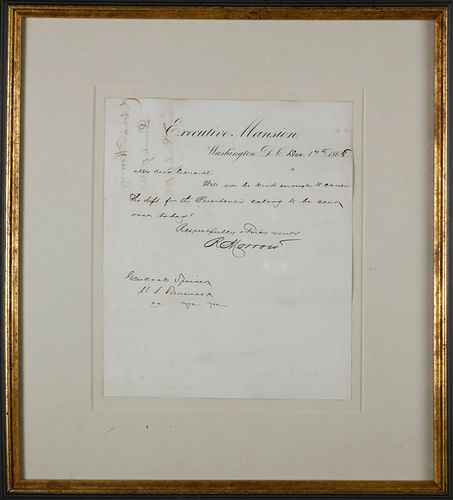 Executive Mansion,
Washington, D. C. Dec. 17th, 1868
My dear General:
Will you be kind enough to cause
the dft for the President's salary to be sent
over to day?
Respectfully & Truly yours
R Morrow
General Spinner
U. S. Treasurer